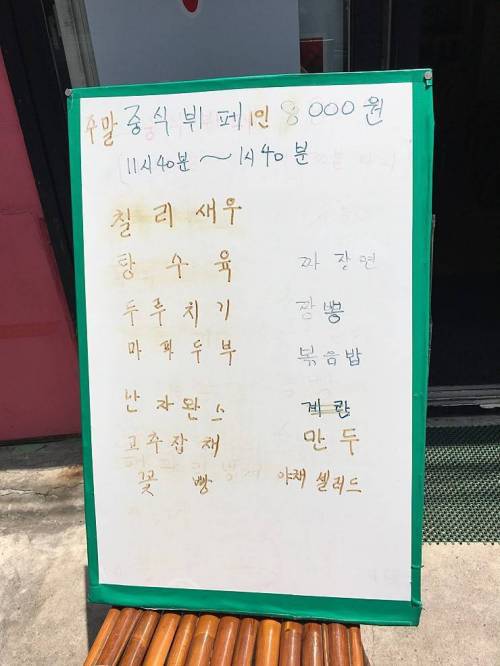 주말 중식 뷔페 1인 8000원
11시40분 ~ 1시 40분
칠리새우
탕수육 짜장면
두루치기 짬뽕
마파두부 볶음밥
난자완스 계란
고추잡채 만두
꽃빵 야채 셀러드